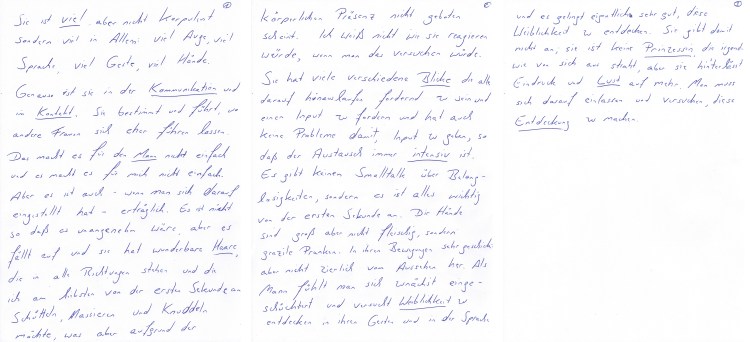 Sie ist viel, aber nicht korpulent
sondern viel in Allem: viel Auge, viel
Sprache, viel Geste, viel Hände.
Genauso ist sie in der Kommunikation und
im Kontakt. Sie bestimmt und führt, wo
andere Frauen sich eher führen lassen.
Das macht es für den Mann nicht einfach
und es macht es für mich nicht einfach.
Aber es ist auch - wenn man sich darauf
eingestellt hat - erträglich. Es ist nicht
so daß es unangenehm wäre, aber es
fällt auf und sie hat wunderbare Haare,
die in alle Richtungen stehen und die
ich am liebsten von der ersten Sekunde an
Schütteln, Massieren und Knuddeln
möchte, was aber aufgrund der
körperlichen Präsenz nicht geboten
scheint. Ich weiß nicht wie sie reagieren
würde, wenn man das versuchen würde.
Sie hat viele verschiedene Blicke die alle
darauf hinauslaufen fordernd zu sein und
einen Input zu fordern und hat auch
keine Probleme damit, Input zu geben, so
daß der Austausch immer intensiv ist.
Es gibt keinen Smalltalk über Belang-
losigkeiten, sondern es ist alles wichtig
von der ersten Sekunde an. Die Hände
sind groß aber nicht fleischig, sondern
grazile Pranken. In ihren Bewegungen sehr geschickt
aber nicht zierlich vom Aussehen her. Als
Mann fühlt man sich zunächst einge-
schüchtert und versucht Weiblichkeit zu
entdecken in ihren Gesten und in der Sprache
und es gelingt eigentlich sehr gut, diese
Weiblichkeit zu entdecken. Sie gibt damit
nicht an, sie ist keine Prinzessin die irgend-
wie von sich aus strahlt, aber sie hinterlässt
Eindruck und Lust auf mehr. Man muss
sich darauf einlassen und versuchen, diese
Entdeckung zu machen.